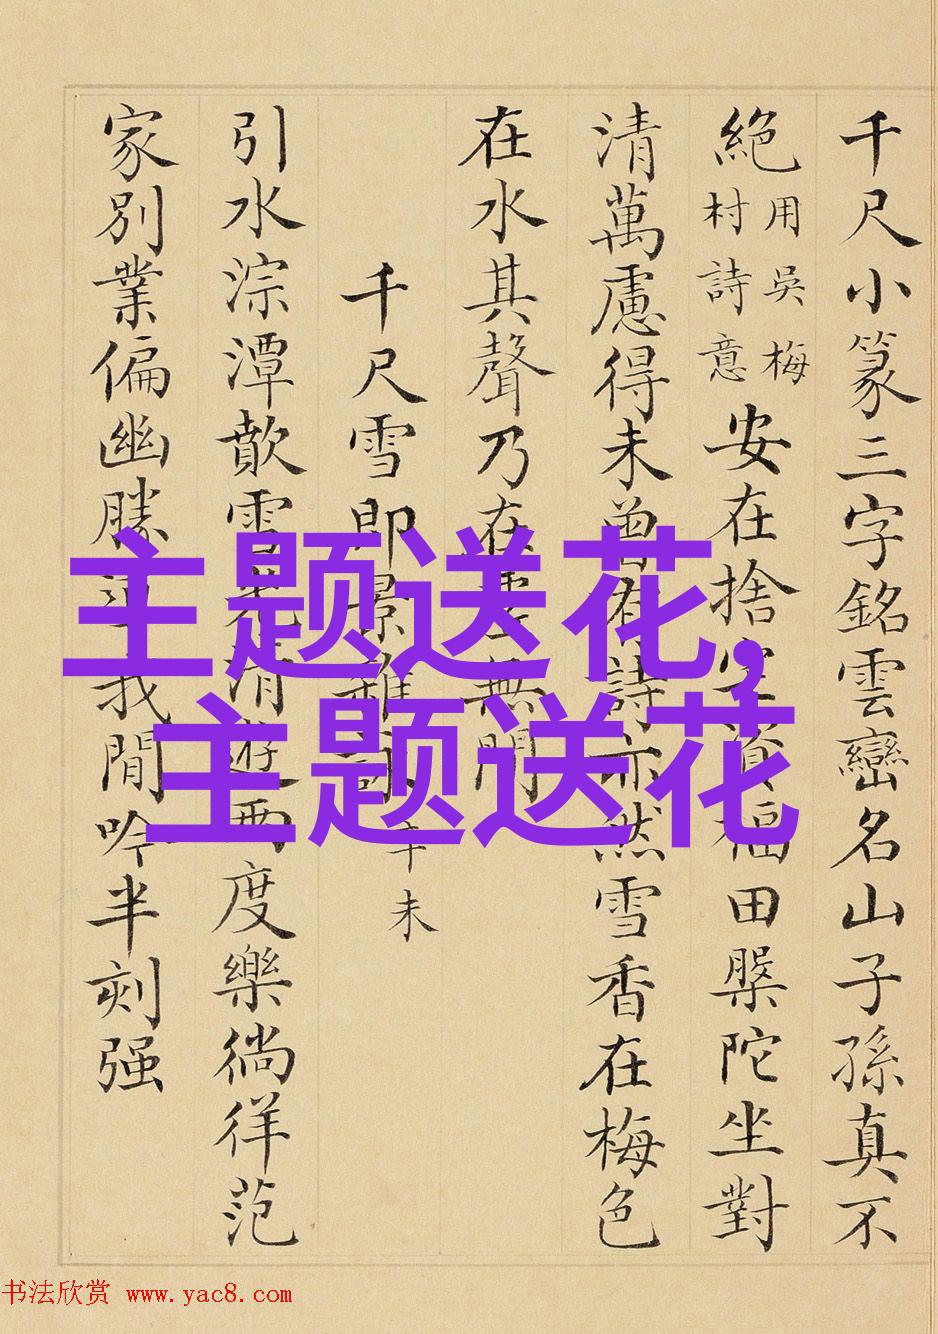 千尺小篆三字銘雲巒名山子孫真不
絕
用吳梅
村詩意
安在捨宅資福田槃陀坐對
清萬慮得未曾有詩亦然雪香在梅色
在水其聲乃在無間
千尺雪即景雜
辛未
引水淙潭歕雪花清遊兩度樂徜徉范
家別業偏幽勝我閒吟半刻强
主题送花,
主题送花
书法欣赏 www.yac8.com